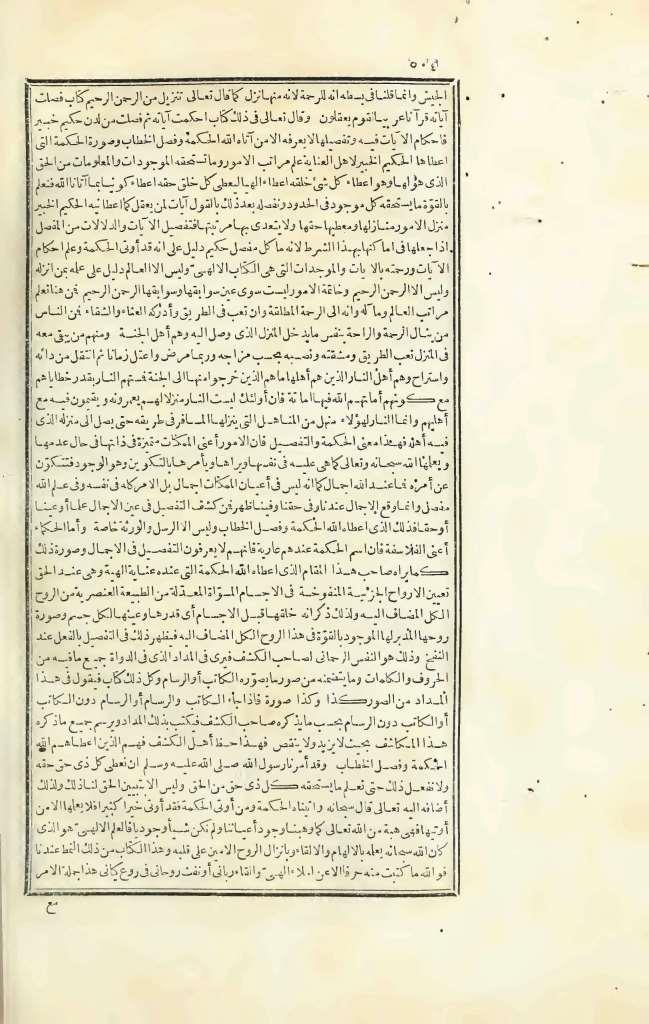 ٥٠٤
الجيش وانما قلنا فى بسطه انه للرحمة لانه منها نزل كما قال تعالى تنزيل من الرحمن الرحيم كتاب فصلت
آياته قرآنا عربيا لقوم يعقلون وقال تعالى فى ذلك كتاب احكمت آياته ثم فصلت من لدن حكيم خبير
فاحكام الآيات فيه وتفصيلها لا يعرفه الا من آتاه الله الحكمة وفصل الخطاب وصورة الحكمة التى
اعطاها الحكيم الخبير لاهل العناية علم مراتب الامور وما تستحقه الموجودات والمعلومات من الحق
الذى هو لها وهو اعطاء كل شئ خلقه اعطاء الهيا ليعطى كل خلق حقه اعطاء كونيا بما آتانا الله فنعلم
بالقوة ما يستحقه كل موجود فى الحدود ونفصله بعد ذلك بالقول آيات لمن يعقل كما اعطانيه الحكيم الخبير
منزل الامور منازلها ومعطيها حقها ولا يتعدى بها مرتبتها فتفصيل الآيات والدلالات من المفصل
اذا جعلها فى اماكنها بهذا الشرط لانه ما كل مفصل حكيم دليل على انه قد أوتى الحكمة وعلم احكام
الآيات ورحمته بالآيات والموجدات التى هى الكتاب الالهى وليس الا العالم دليل على علمه بمن انزله
وليس الا الرحمن الرحيم وخاتمة الامور ليست سوى عين سوابقها وسوابقها الرحمن الرحيم فمن هنا تعلم
مراتب العالم وما آله وانه الى الرحمة المطلقة وان تعب فى الطريق وأدركه العناء والشقاء فمن الناس
من ينال الرحمة والراحة بنفس ما يدخل المنزل الذى وصل اليه وهم أهل الجنة ومنهم من يبقى معه
فى المنزل تعب الطريق ومشقته ونصبه بحسب مزاجه وربما مرض واعتل زمانا ثم انتقل من دائه
واستراح وهم أهل النار الذين هم أهلها ما هم الذين خرجوا منها الى الجنة فمستهم النار بقدر خطاياهم
مع كونهم أماتهم الله فيها اماتة فان أولئك ليست النار منزلا لهم يعمرونه ويقيمون فيه مع
أهليهم وانما النار لهؤلاء منهل من المناهل التى ينزلها المسافر فى طريقه حتى يصل الى منزله الذى
فيه أهله فهذا معنى الحكمة والتفصيل فان الامور أعنى الممكنات متميزة فى ذاتها فى حال عدمها
ويعلمها الله سبحانه وتعالى كما هى عليه فى نفسها ويراها ويأمرها بالتكوين وهو الوجود فتتكون
عن أمره فما عند الله اجمال كما انه ليس فى أعيان الممكنات اجمال بل الامر كله فى نفسه وفى علم الله
مفصل وانما وقع الاجمال عندنا وفى حقنا وفينا ظهر فمن كشف التفصيل فى عين الاجمال علما أو عينا
أو حقا فذلك الذى اعطاه الله الحكمة وفصل الخطاب وليس الا الرسل والورثة خاصة وأما الحكماء
أعنى الفلاسفة فان اسم الحكمة عندهم عارية فانهم لا يعرفون التفصيل فى الاجمال وصورة ذلك
كما يراه صاحب هذا المقام الذى اعطاه الله الحكمة التى عنده عناية الهية وهى عند الحق
تعيين الارواح الجزئية المنفوخة فى الاجسام المسواة المعدلة من الطبيعة العنصرية من الروح
الكل المضاف اليه ولذلك ذكر انه خلقها قبل الاجسام أى قدرها وعينها لكل جسم وصورة
روحها المدبر لها الموجود بالقوة فى هذا الروح الكل المضاف اليه فيظهر ذلك فى التفصيل بالفعل عند
النفخ وذلك هو النفس الرحمانى لصاحب الكشف فيرى فى المداد الذى فى الدواة جميع ما فيه من
الحروف والكلمات وما يتضمنه من صور ما يصوره الكاتب أو الرسام وكل ذلك كتاب فيقول فى هذا
المداد من الصور كذا وكذا صورة فاذا جاء الكاتب والرسام أو الرسام دون الكاتب
أو الكاتب دون الرسام بحسب ما يذكره صاحب الكشف فيكتب بذلك المداد ويرسم جميع ما ذكره
هذا المكاشف بحيث لا يزيد ولا ينقص فهذا حظ أهل الكشف فهم الذين اعطاهم الله
الحكمة وفصل الخطاب وقد أمرنا رسول الله صلى الله عليه وسلم ان نعطى كل ذى حق حقه
ولا نفعل ذلك حتى نعلم ما يستحقه كل ذى حق من الحق وليس الا بتبيين الحق لنا ذلك ولذلك
أضافه اليه تعالى قال سبحانه وآتيناه الحكمة ومن أوتى الحكمة فقد أوتى خيرا كثيرا فلا يعلمها الا من
أوتيها فهى هبة من الله تعالى كما وهبنا وجود أعياننا ولم نكن شيأ وجوديا فالعلم الالهى هو الذى
كان الله سبحانه يعلمه بالالهام والالقاء وبانزال الروح الامين على قلبه وهذا الكتاب من ذلك النمط عندنا
فوالله ما كتبت منه حرفا الا عن املاء الهى والقاء ربانى أو نفث روحانى فى روع كيانى هذا جملة الامر
مع